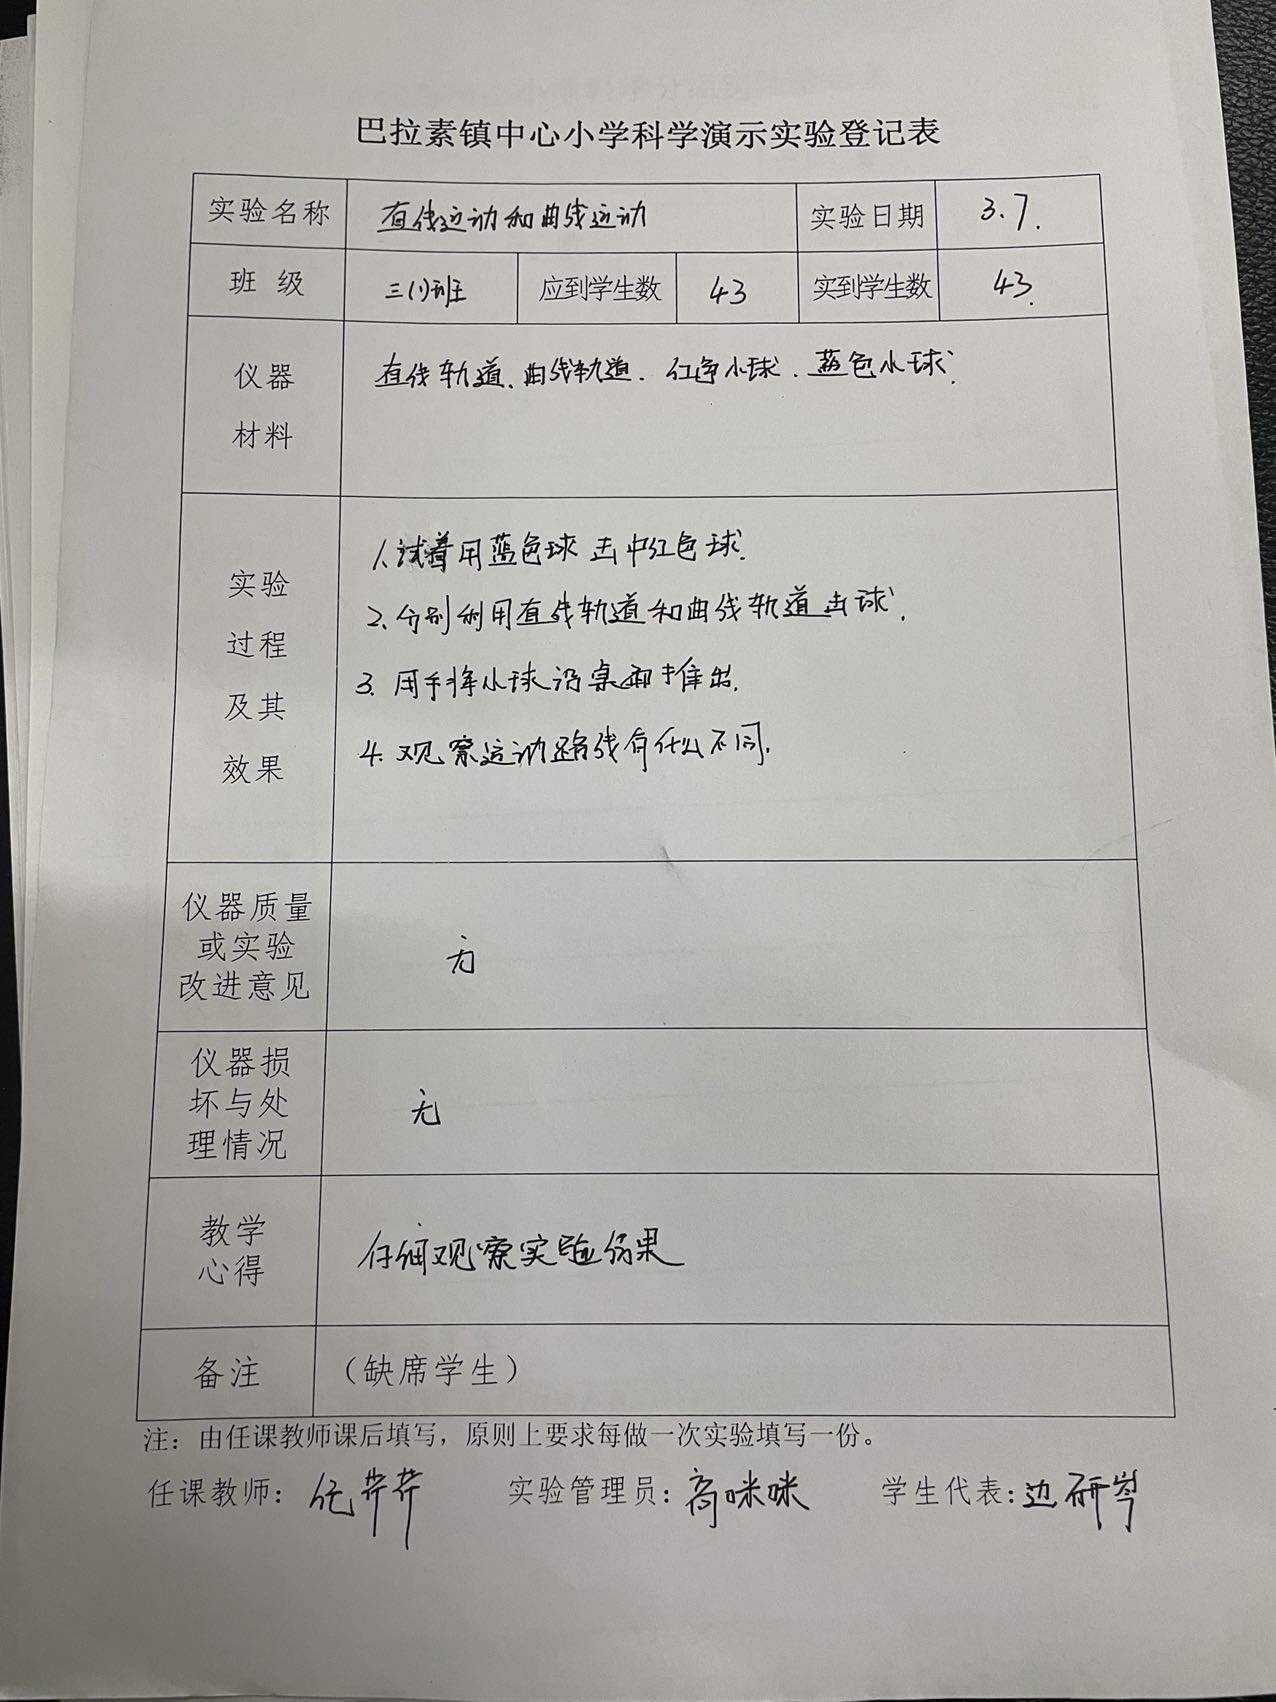 巴拉素镇中心小学科学演示实验登记表
实验名称 直线运动和曲线运动 实验日期 3.7.
班级 三(1)班 应到学生数 43 实到学生数 43.
仪器
材料
直线轨道、曲线轨道、红色小球、蓝色小球.
实验
过程
及其
效果
1.试着用蓝色球击中红色球.
2、分别利用直线轨道和曲线轨道击球.
3. 用手将小球沿桌面推出.
4. 观察运动路线有什么不同.
仪器质量
或实验
改进意见
无
仪器损
坏与处
理情况
无
教学
心得
仔细观察实验结果
备注 （缺席学生）
注：由任课教师课后填写，原则上要求每做一次实验填写一份。
任课教师：任芹芹 实验管理员：高咪咪 学生代表：边研岑